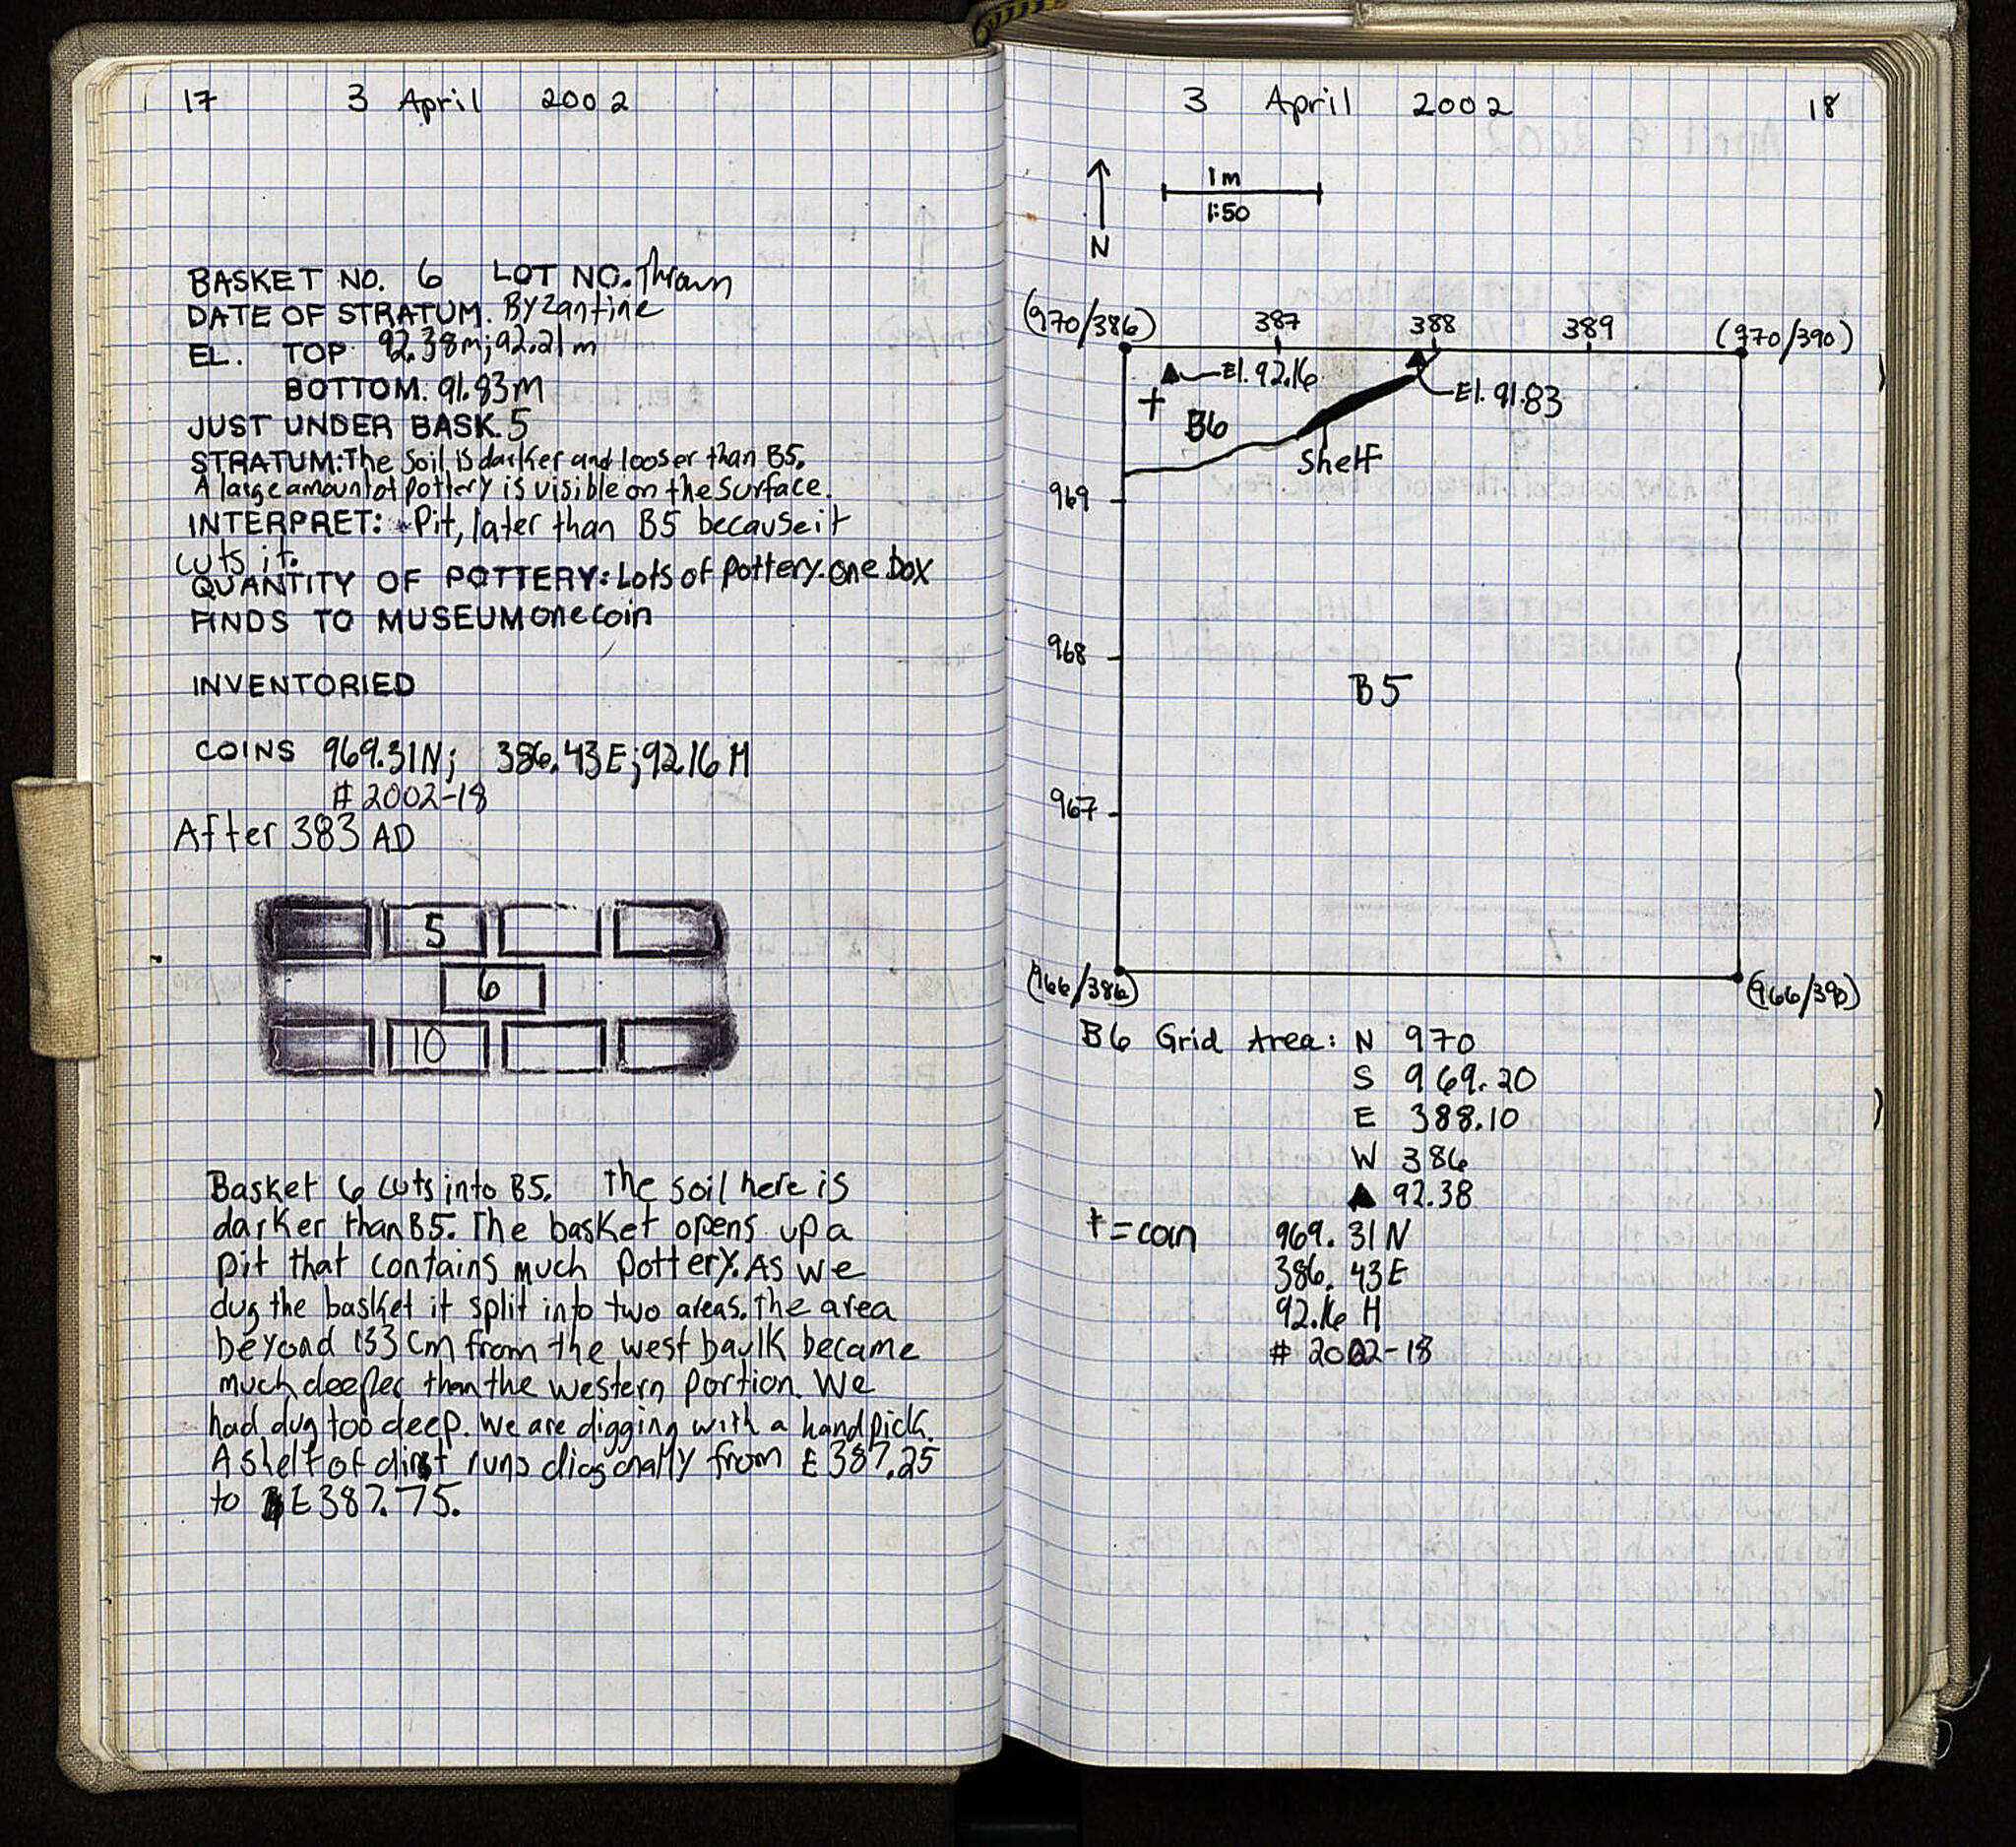 17 3 April 2002
BASKET NO. 6 LOT NO. Thrown
DATE OF STRATUM. Byzantine
EL. TOP: 92.38m; 92.21m
BOTTOM: 91.83M
JUST UNDER BASK. 5
STRATUM: The soil is darker and looser than B5.
A large amount of pottery is visible on the surface.
INTERPRET: Pit, later than B5 because it
cuts it.
QUANTITY OF POTTERY: Lots of pottery. one box
FINDS TO MUSEUM one coin
INVENTORIED
COINS 969.31N; 386.43E; 92.16 H
# 2002-18
After 383 AD
5
6
10
Basket 6 cuts into B5. the soil here is
darker than B5. The basket opens up a
pit that contains much pottery. As we
dug the basket it split into two areas. the area
beyond 133 cm from the west baulk became
much deeper than the western portion. We
had dug too deep. We are digging with a handpick.
A shelf of dirt runs diagonally from E 387.25
to E 387.75.
3 April 2002 18
1m
1:50
N
(970/386) 387 388 389 (970/390)
El. 92.16
El. 91.83
B6
Shelf
969
968
B5
967
(966/386) (966/390)
B6 Grid Area: N 970
S 969.20
E 388.10
W 386
▲ 92.38
† = coin 969.31N
386.43E
92.16 H
# 2002-18